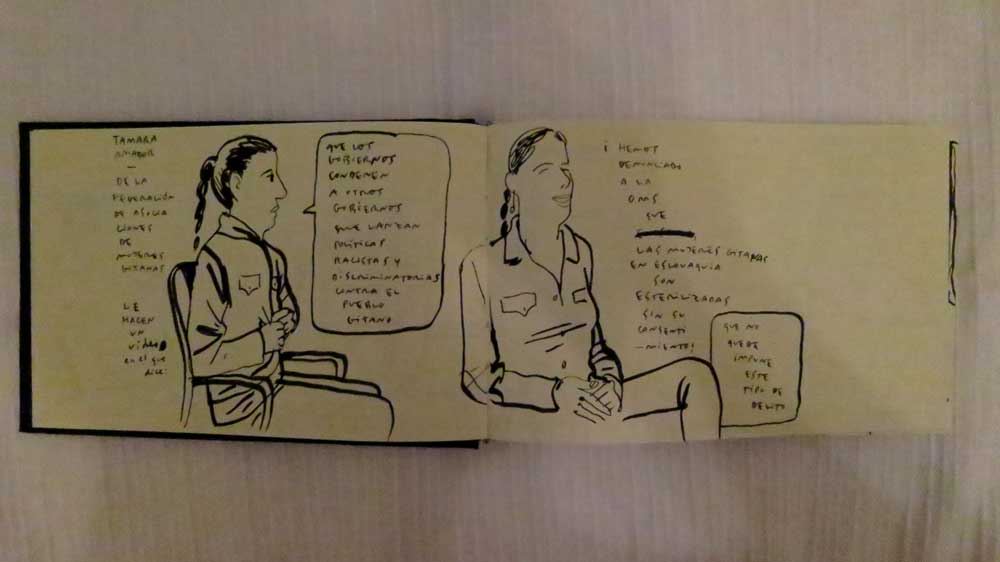 TAMARA
AMADOR
—
DE LA
FEDERACIÓN
DE ASOCIA
CIONES
DE
MUJERES
GITANAS
LE
HACEN
UN
video
en el que
dice:
QUE LOS
GOBIERNOS
CONDENEN
A OTROS
GOBIERNOS
QUE LANZAN
POLÍTICAS
RACISTAS Y
DISCRIMINATORIAS
CONTRA EL
PUEBLO
GITANO
¡ HEMOS
DENUNCIADO
A LA
OMS
QUE
LAS MUJERES GITANAS
EN ESLOVAQUIA
SON
ESTERILIZADAS
SIN SU
CONSENTI
-MIENTO!
QUE NO
QUEDE
IMPUNE
ESTE
TIPO DE
DELITO